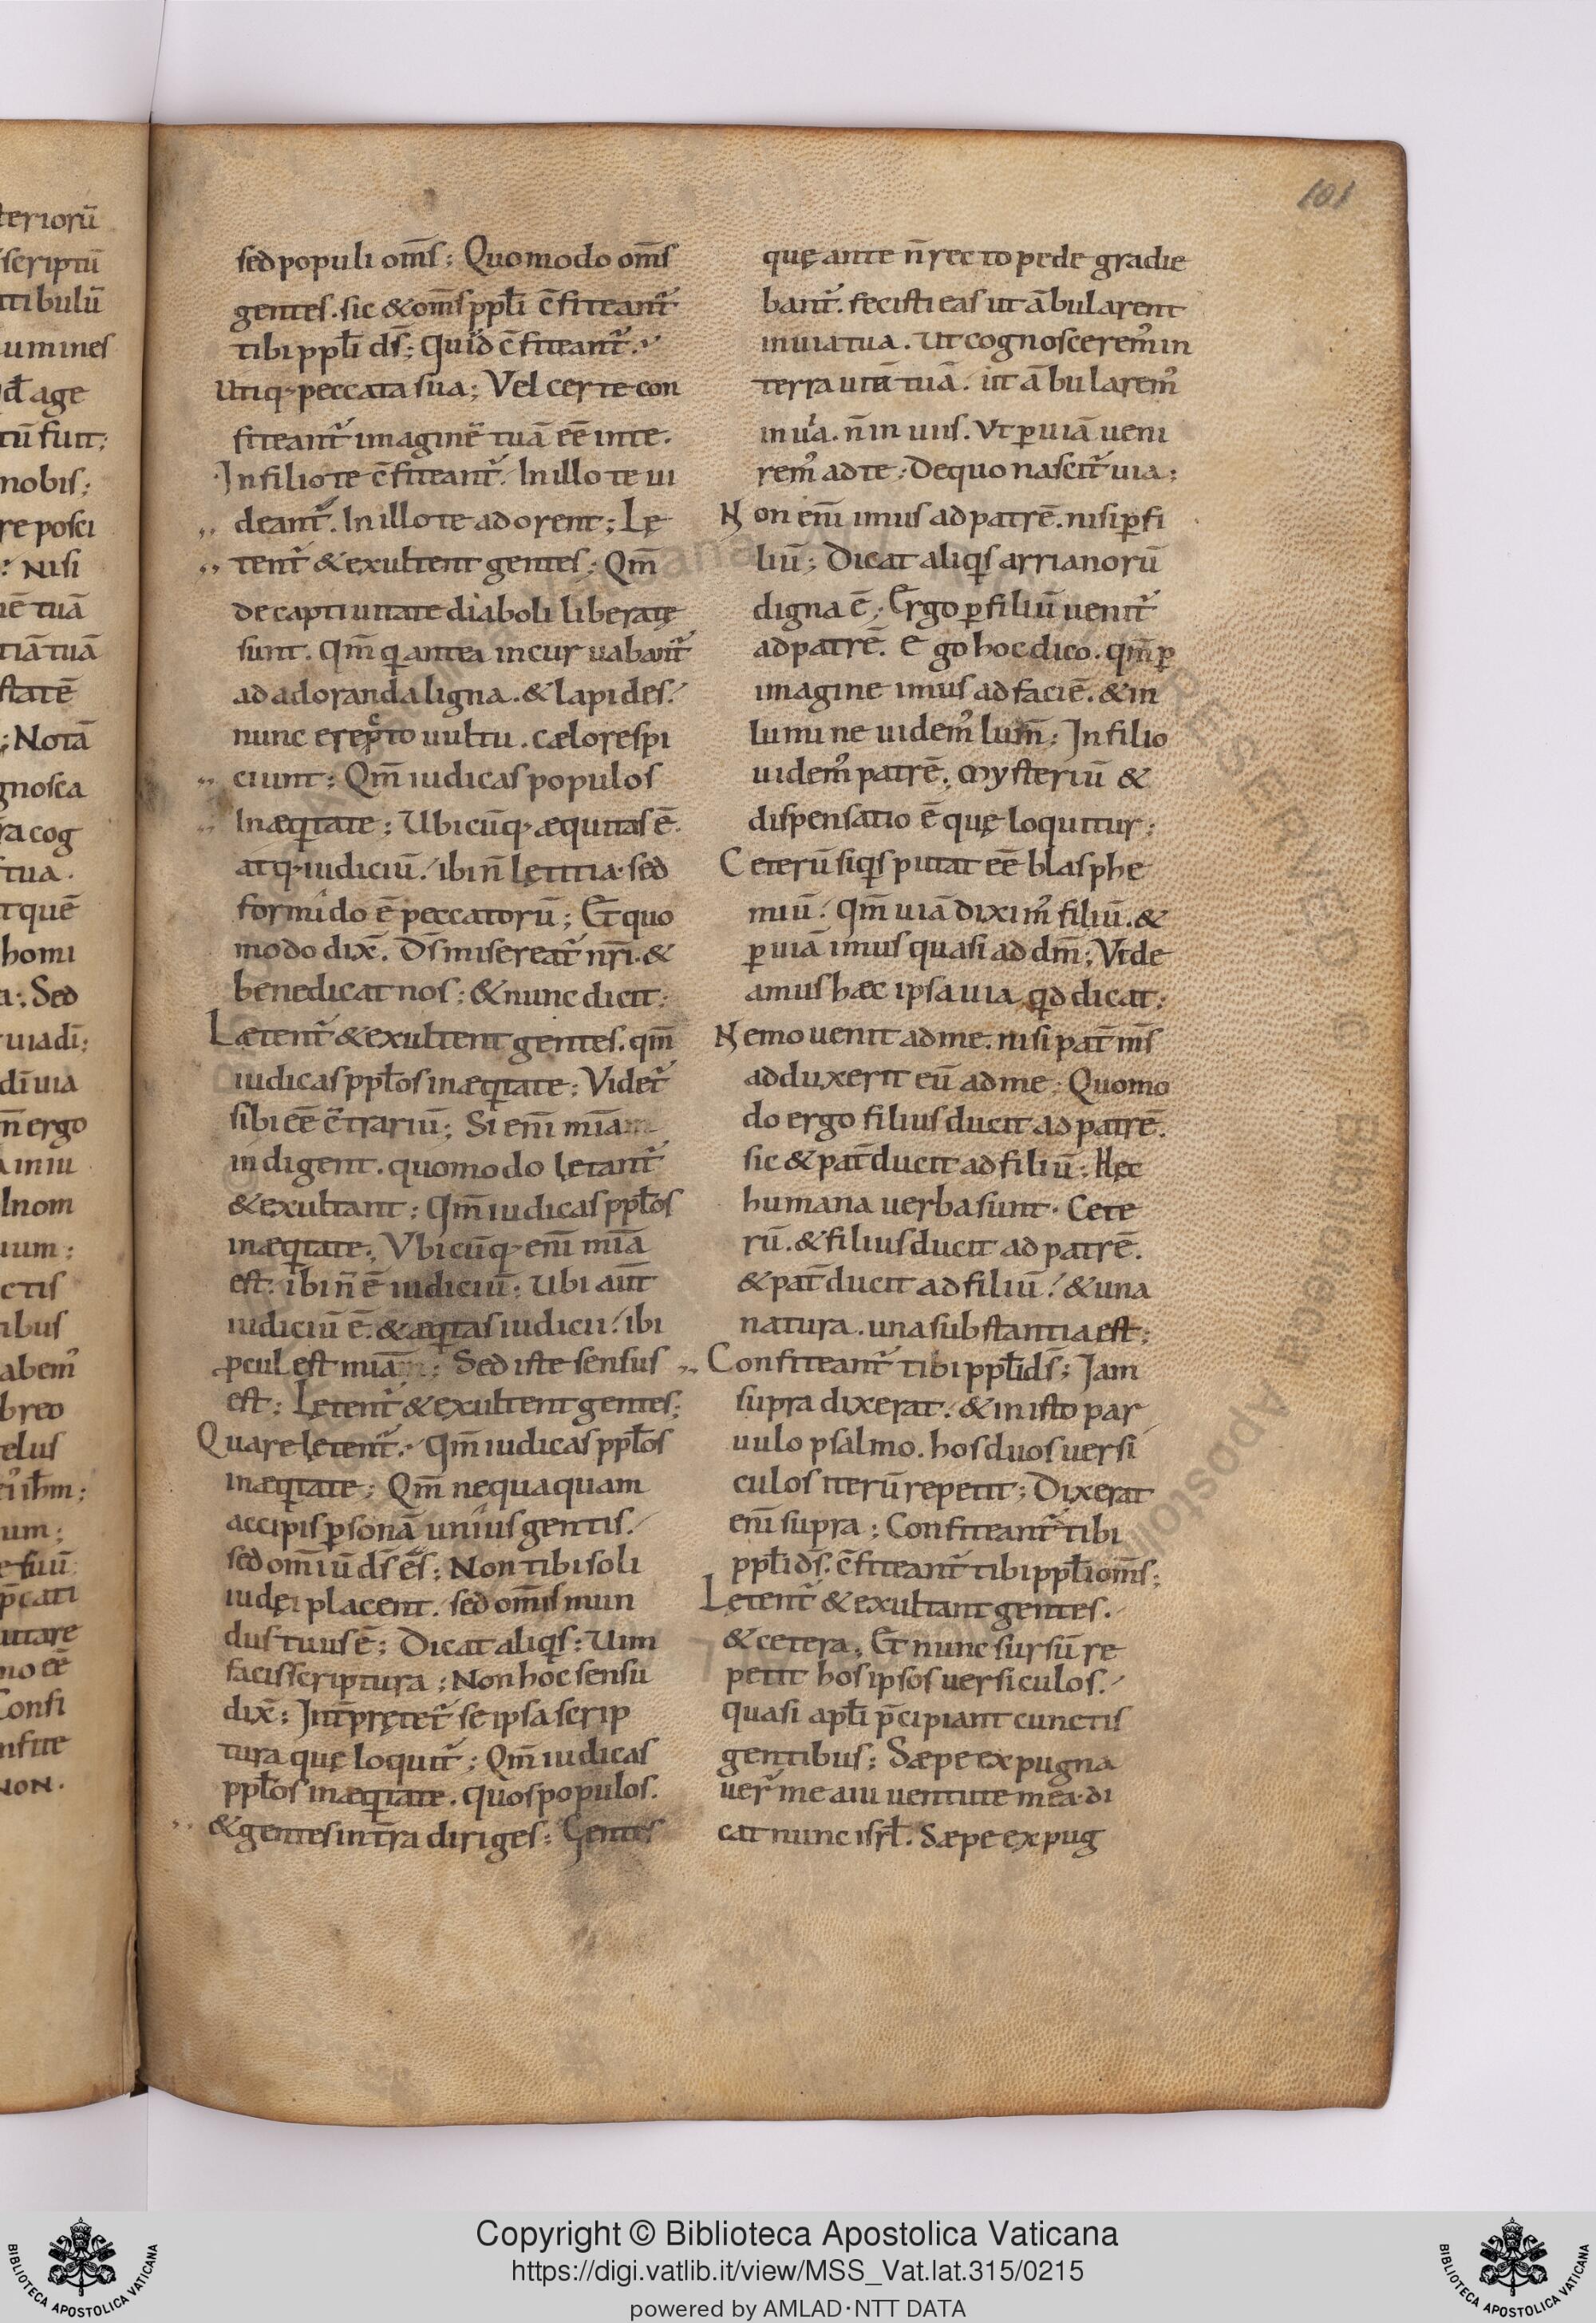 teriorū
scriptū
tibulū
umines
qđ age
tū fuit;
nobis;
re posci
nisi
nē tuā
tiā tuā
statē
; Notā
gnosca
ra cog
tua.
tquē
homi
a; Sed
uiadī;
dī uia
n̄ ergo
iniu
lnom
uum;
ctis
ibus
abemꝰ
breo
elus
ih̄m;
um;
e fiiū
p̄cati
utare
mo eē
Confi
nfite
NON.
sed populi om̄s; Quomodo om̄s
gentes. sic & om̄s ppłi c̄fiteant᷑
tibi ppłi ds̄; Quid c̄fiteant᷑.
Utiq; peccata sua; Vel certe con
fiteant᷑ imaginē tuā eē inte.
In filio te c̄fiteant᷑. In illo te ui
deant᷑. In illo te adorent; Lę
tent᷑ & exultent gentes; Qm̄
de captiuitate diaboli liberatę
sunt. Qm̄ q antea incuruabant᷑
ad adoranda ligna. & lapides.
nunc erepto uultu. cælo respi
ciunt; Qm̄ iudicas populos
In æqtate; Ubicūq; æquitas ē.
atq; iudiciū. ibi n̄ lętitia. sed
formido ē peccatorū; Et quo
modo dix̄. Ds̄ misereat᷑ nr̄i. &
benedicat nos; & nunc dicit;
Lætent᷑ & exultent gentes. qm̄
iudicas ppłos in æqtate; Videt᷑
sibi eē c̄trariū; Si eni͞ mīam
indigent. quomodo lętant᷑
& exultant; Qm̄ iudicas ppłos
in æqtate; Vbicūq; eni͞ mīa
est. ibi n̄ ē iudiciū; Ubi aūt
iudiciū ē. & æqtas iudicii. ibi
ꝓcul est mīa; Sed iste sensus
est; Lętent᷑ & exultent gentes;
Quare lętent᷑. Qm̄ iudicas ppłos
in æqtate; Qm̄ nequaquam
accipis ꝑsonā unius gentis.
sed omiū ds̄ es; Non tibi soli
iudęi placent. sed om̄is mun
dus tuus ē; Dicat aliqs; Uim
facis scriptura; Non hoc sensu
dix̄; Int̄prętet᷑ se ipsa scrip
tura quę loquit᷑; Qm̄ iudicas
ppłos in æqtate. quos populos.
& gentes in tr̄a diriges; Gentes
101
quę ante n̄ recto pede gradie
bant᷑. fecisti eas ut ābularent
in uia tua. Ut cognosceremꝰ in
terra uiā tuā. ut ābularemꝰ
in uia. n̄ in uiis. Vt ꝑ uiā ueni
remꝰ ad te; De quo nascit᷑ uia;
Non eni͞ imus ad patrē. nisi ꝑ fi
liū; Dicat aliqs arrianorū
digna ē; Ergo ꝑ filiū uenit᷑
ad patrē. Ego hoc dico. qm̄ ꝑ
imagine imus ad faciē. & in
lumine uidemꝰ lum̄; In filio
uidemꝰ patrē; Mysteriū &
dispensatio ē quę loquitur;
Ceterū siqs putat eē blasphe
miū. Qm̄ uiā diximꝰ filiū. &
ꝑ uiā imus quasi ad dm̄; Vide
amus hæc ipsa uia qd dicat;
Nemo uenit ad me. nisi pat̄ ms̄
adduxerit eū ad me; Quomo
do ergo filius ducit ad patrē.
sic & pat̄ ducit ad filiū; Hęc
humana uerba sunt. Cete
rū. & filius ducit ad patrē.
& pat̄ ducit ad filiū. & una
natura. una substantia est;
Confiteant᷑ tibi ppłi ds̄; Iam
supra dixerat. & in isto par
uulo psalmo. hos duos uersi
culos iterū repetit; Dixerat
eni͞ supra; Confiteant᷑ tibi
ppłi ds̄. c̄fiteant᷑ tibi ppłi om̄s;
Lętent᷑ & exultant gentes.
& cetera; Et nunc sursū re
petit hos ipsos uersiculos.
quasi apłi p̄cipiant cunctis
gentibus; Sæpe expugna
uer᷑ me a iuuentute mea. di
cat nunc isrł. Sæpe expug
Copyright © Biblioteca Apostolica Vaticana
https://digi.vatlib.it/view/MSS_Vat.lat.315/0215
powered by AMLAD·NTT DATA
BIBLIOTECA APOSTOLICA VATICANA
BIBLIOTECA APOSTOLICA VATICANA